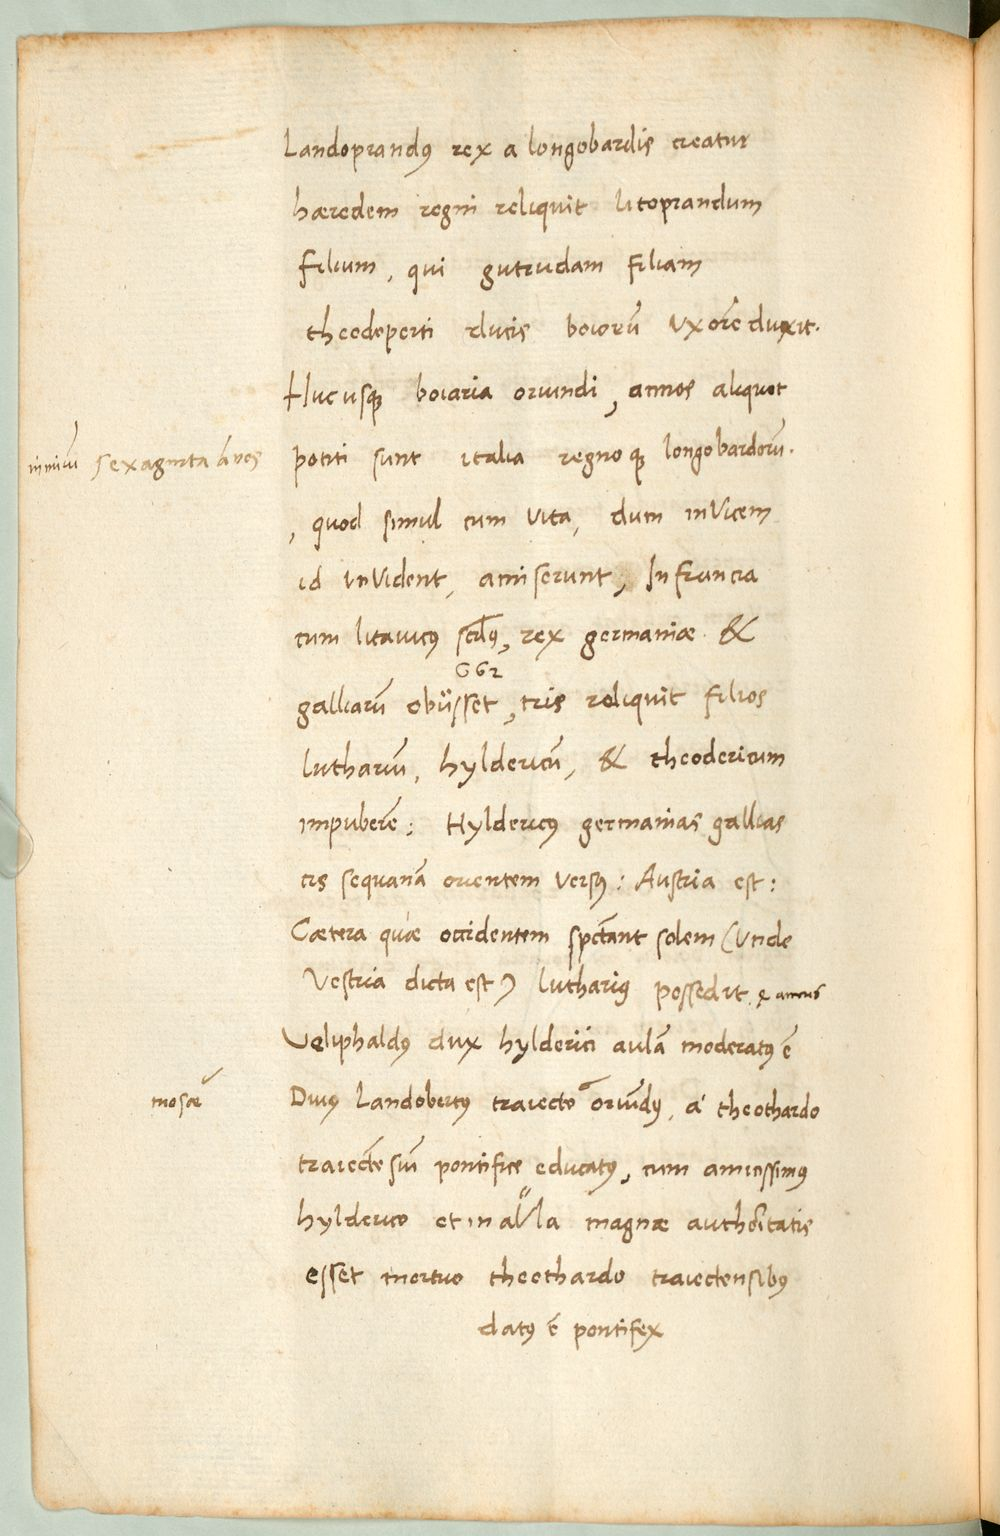 Landoprandꝰ rex a longobardis creatur
hæredem regni reliquit litoprandum
filium, qui gutrudam filiam
theodoperti ducis boiorū uxorē duxit.
Hucusqꝫ boiaria oriundi, annos aliquot
sexaginta ānos
potiti sunt italia regnoqꝫ longobardorū.
, quod simul cum vita, dum invicem
id invident, amiserunt, In francia
cum litavicꝰ , rex germaniæ &
662
galliarū obiisset, tris reliquit filios
lutharıū, hyldericū, & theodericum
impuberē: Hyldericꝰ germanias gallias
cis sequanā orientem versꝰ: Austria est:
Cætera quæ occidentem spectant solem (Unde
Vestria dicta est) luthariꝰ possedit. 4 annis
Veliphaldꝰ dux hylderici aulā moderatꝰ ē
mosæ
Divꝰ Landobertꝰ traiecto oriūdꝰ, á theothardo
traiectēsiū pontifice educatꝰ, cum amicissimꝰ
hylderico et in aula magnæ authōitatis
esset mortuo theothardo traiectensibꝰ
datꝰ ē pontifex